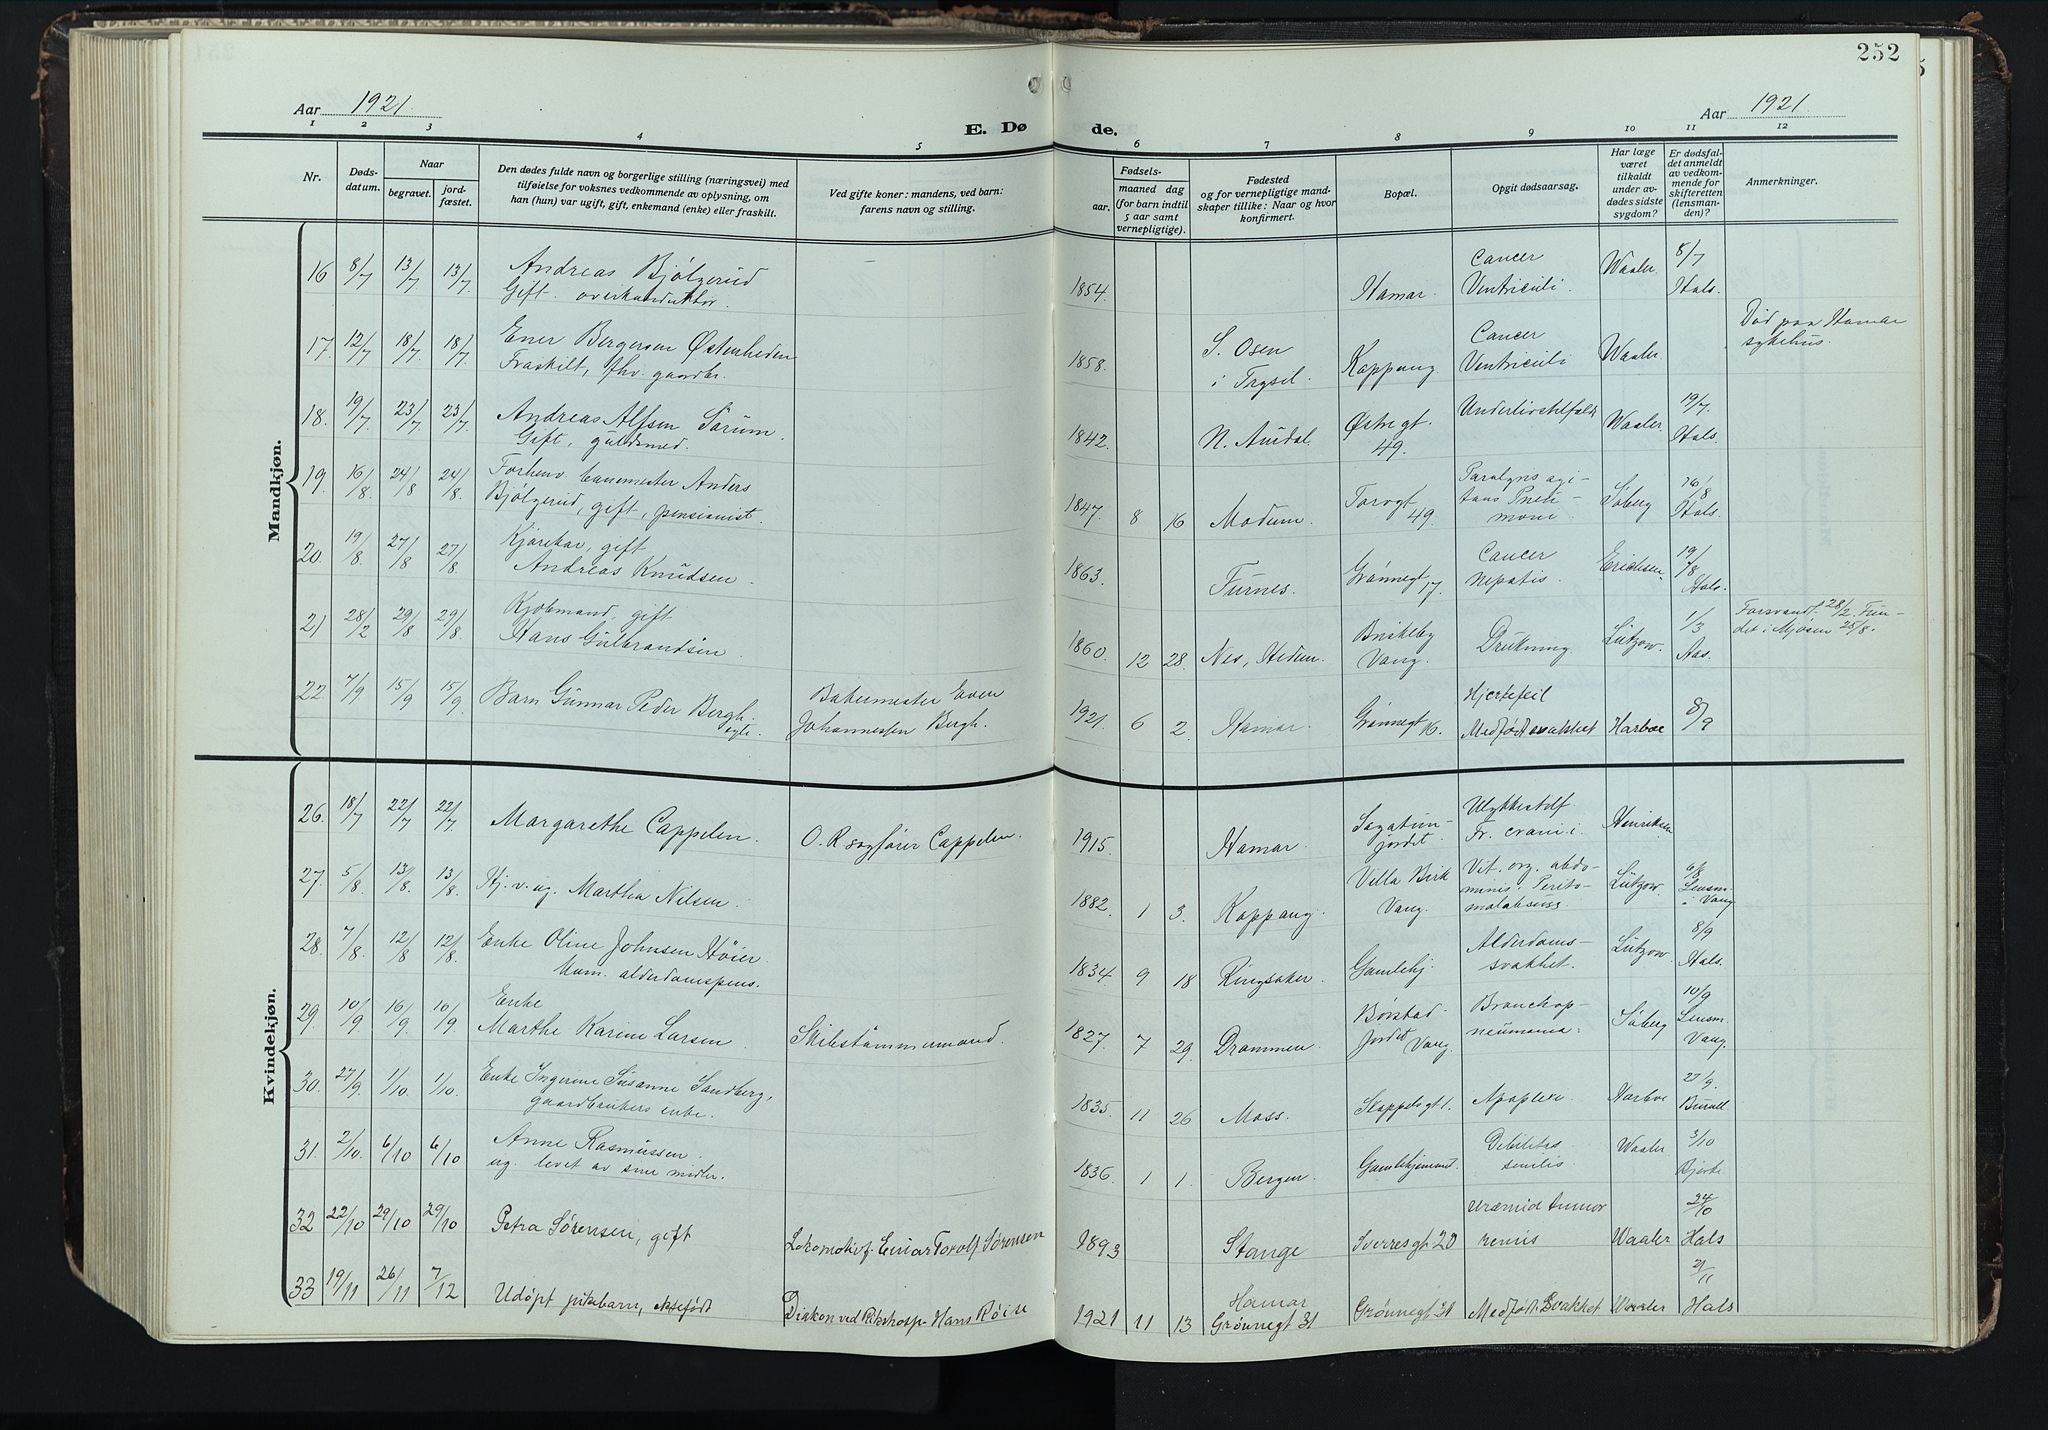 252
Aar 1921.
Aar 1921.
E. Dø
de.
1 2 3 4 5 6 7 8 9 10 11 12
Nr.
Døds-
datum.
Naar
begravet.
jord-
fæstet.
Den dødes fulde navn og borgerlige stilling (næringsvei) med
tilføielse for voksnes vedkommende av oplysning, om
han (hun) var ugift, gift, enkemand (enke) eller fraskilt.
Ved gifte koner: mandens, ved barn:
farens navn og stilling.
Fødsels-
aar.
maaned dag
(for barn indtil
5 aar samt
vernepligtige).
Fødested
og for vernepligtige mand-
skaper tillike: Naar og hvor
konfirmert.
Bopæl.
Opgit dødsaarsag.
Har læge
været
tilkaldt
under av-
dødes sidste
sygdom?
Er dødsfal-
det anmeldt
av vedkom-
mende for
skifteretten
(lensman-
den)?
Anmerkninger.
Mandkjøn.
16 8/7 13/7 13/7 Andreas Bjølgerud
Gift. overkonduktør.
1854. Hamar. Cancer
Ventriculi. Waaler. 8/7
Hals.
17. 12/7 18/7 18/7 Ener Bergersen Østenheden
Fraskilt, fhv. gaardbr.
1858. S. Osen
i Trysil. Koppang Cancer
Ventriculi Waaler. Død paa Hamar
sykehus.
18. 19/7 23/7 23/7 Andreas Alfsen Sørum.
Gift, guldsmed.
1842. N. Aurdal. Østregt.
49. Underlivstilfælde Waaler. 19/7.
Hals.
19. 16/8. 24/8 24/8. Forhenv. banemester Anders
Bjølgerud, gift, pensionist.
1847. 8 16 Modum. Torvgt
49. Paralysis agi-
tans Pneu-
moni Søberg 16/8
Hals.
20. 19/8. 27/8 27/8. Kjørekar, gift
Andreas Knudsen.
1863. Furnes. Grønnegt 17. Cancer
hepatis. Erichsen. 19/8
Hals.
21 28/2 29/8 29/8. Kjøbmand, gift
Hans Gulbrandsen.
1860. 12 28. Nes, Hedem. Briskeby
Vang. Drukning Lützow. 1/3
Aas. Forsvandt 28/2. Fun-
det i Mjøsen 25/8.
22 7/9 15/9 15/9. Barn Gunnar Peder Bergh.
egte.
Bakermester Even
Johannessen Bergh.
1921 6 2. Hamar. Grønnegt 16. Hjertefeil
Medfødt svakhet Harboe 8/9
Kvindekjøn.
26. 18/7 22/7 22/7. Margarethe Cappelen. O. R sagfører Cappelen.
1915. Hamar. Sagatun-
jordet. Ulykkestilf.
Fr. cranii. Henriksen
27. 5/8. 13/8. 13/8. Hj. v. ug. Martha Nilsen.
1882. 1 3. Koppang. Villa Birk
Vang. Vit. org. abdo-
minis. Perito- Lützow. 6/8
Lensm.
i Vang
28. 7/8. 12/8 12/8. Enke Oline Johnsen Høier.
Kom. alderdomspens.
1834 9 18 Ringsaker. Gamlehj. Alderdoms-
svakhet. Lützow. 8/9
Hals.
29. 10/9 16/9. 10/9 Enke
Marthe Karine Larsen. Skibstømmermand.
1827. 7 29. Drammen. Børstad
Jordet Vang. Bronchop-
neumonia. Søberg 10/9
Lensm.
Vang.
30. 27/9. 1/10 1/10. Enke Ingerine Susanne Sandberg,
gaardbrukers enke.
1835. 11 26 Moss. Skappelsgt 1. Apoplexi. Harboe 27/9.
31. 2/10. 6/10 6/10 Anne Rasmussen.
ug. levet av sine midler.
1836. 1 1. Bergen. Gamlehjemmet. Debilitas
senilis Waaler 3/10
32 22/10 29/10 29/10 Petra Sørensen, gift Lokomotivf. Einar Torolf Sørensen
1893 Stange Sverresgt 20 Uræmid tumor
renis Waaler 24/10
Hals
33 19/11 26/11 7/12 Udøpt pikebarn, ektefødt Diakon ved Rikshosp. Hans Røise
1921 11 13 Hamar
Grønnegt 31 Grønnegt 31 Medfødt Svakhet Waaler 21/11
Hals